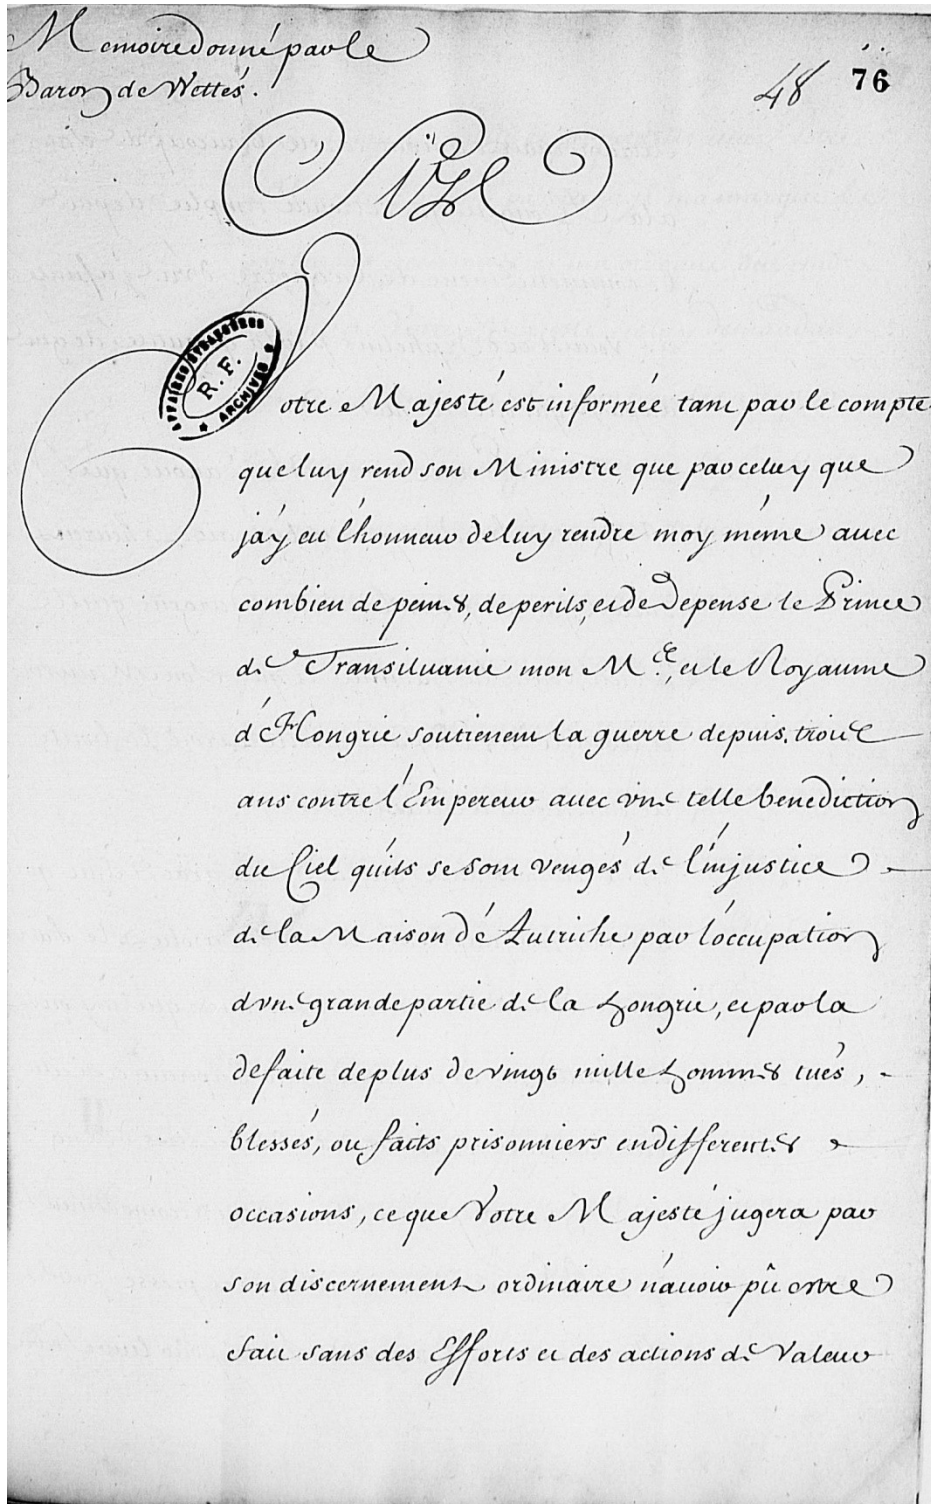 Memoire donné par le
Baron de Vettés.
48 76
Sire
AFFAIRES ETRANGERES
R. F.
* ARCHIVES *
Votre Majesté est informée tant par le compte
que luy rend son Ministre que par celuy que
j'ay eu l'honneur de luy rendre moy méme avec
combien de peines, de perils, et de depense le Prince
de Transilvanie mon Me. et le Royaume
d'Hongrie soutienent la guerre depuis trois
ans contre l'Empereur avec vne telle benediction
du Ciel qu'ils se sont vengés de l'injustice
de la Maison d'Autriche par l'occupation
d'vne grande partie de la hongrie, et par la
defaite de plus de vingt mille hommes tués,
blessés, ou faits prisonniers en differentes
occasions, ce que Votre Majesté jugera par
son discernement ordinaire n'avoir pû estre
fait sans des Efforts et des actions de Valeur